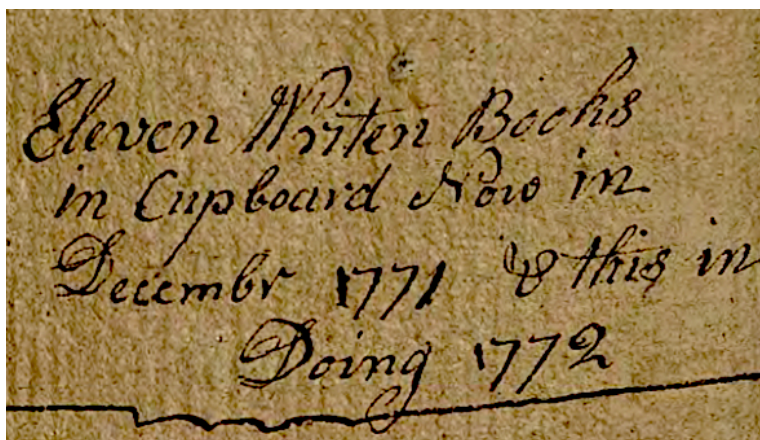 Eleven Writen Books
in Cupboard Now in
Decembr 1771 & this in
Doing 1772